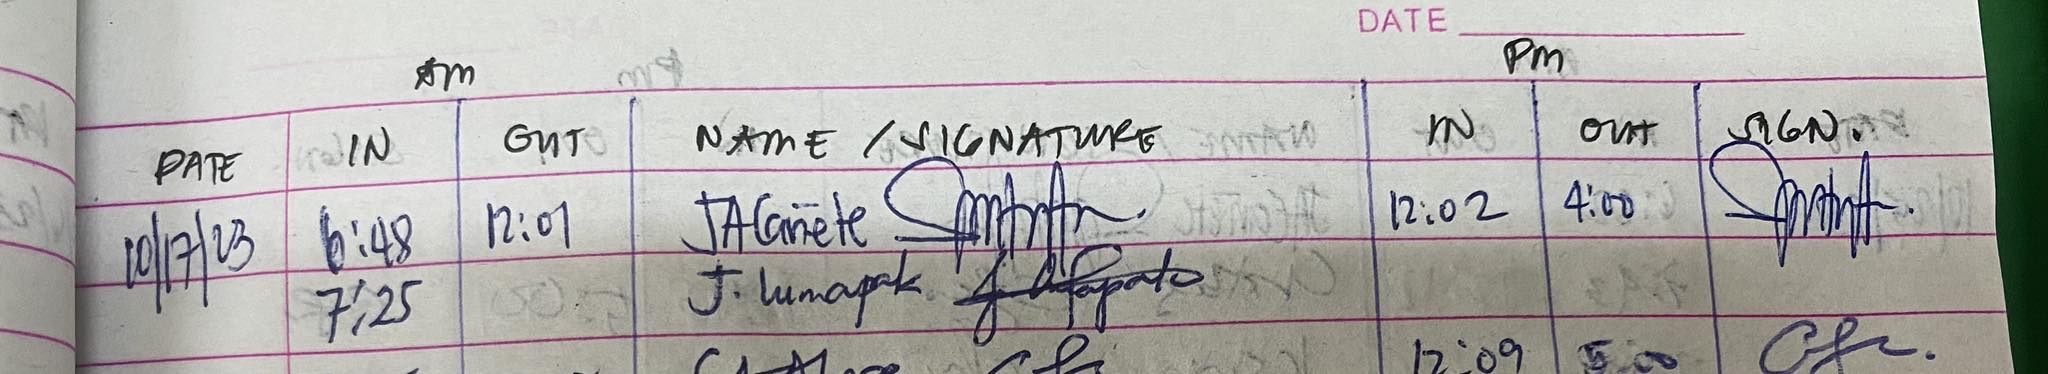 DATE
AM PM
DATE IN OUT NAME / SIGNATURE IN OUT SIGN.
10/17/23 6:48 12:01 JACañete 12:02 4:00
7:25 J. Lumapak
12:09 5:00